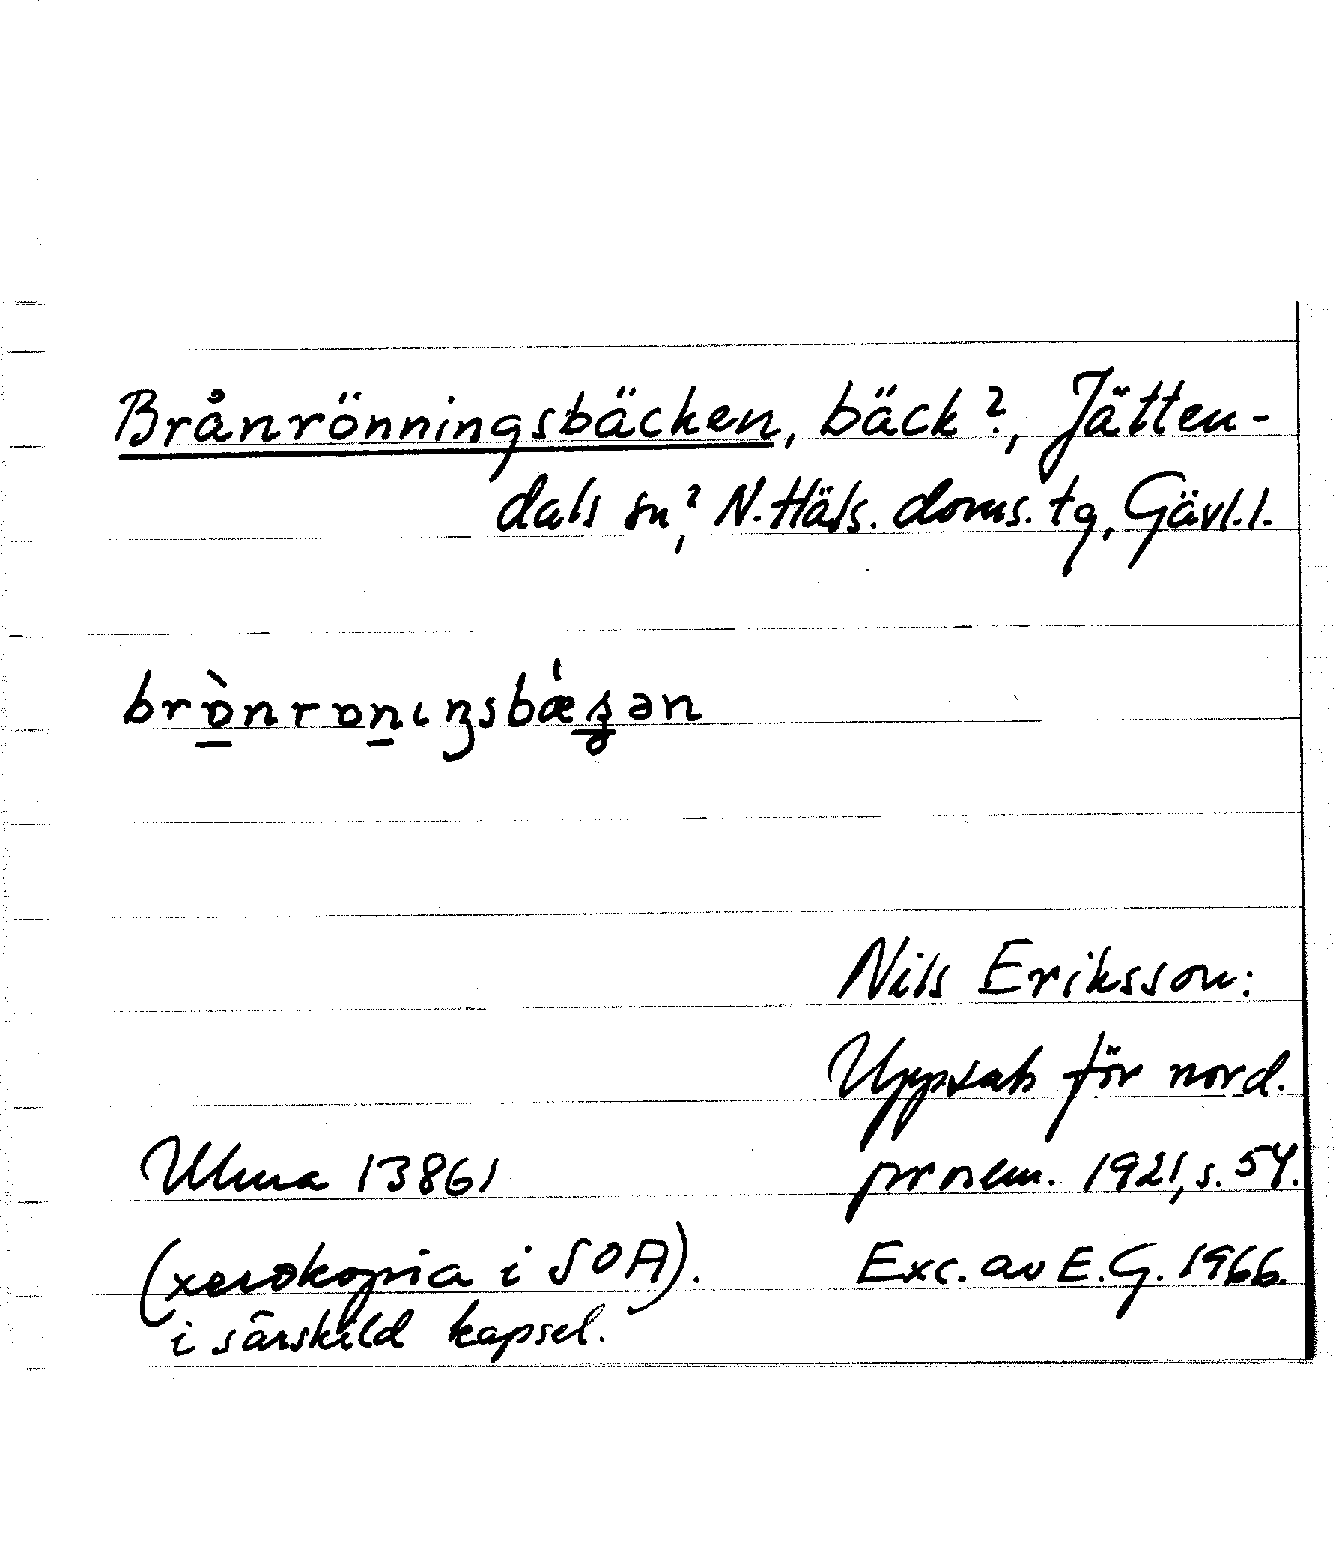 Brånrönningsbäcken, bäck?, Jätten-
dals sn?, N. Häls. doms. tg, Gävl. l.
Nils Eriksson:
Uppsats för nord.
Ulma 13861 prosem. 1921, s. 54.
(xerokopia i SOA). Exc. av E. G. 1966.
i särskild kapsel.